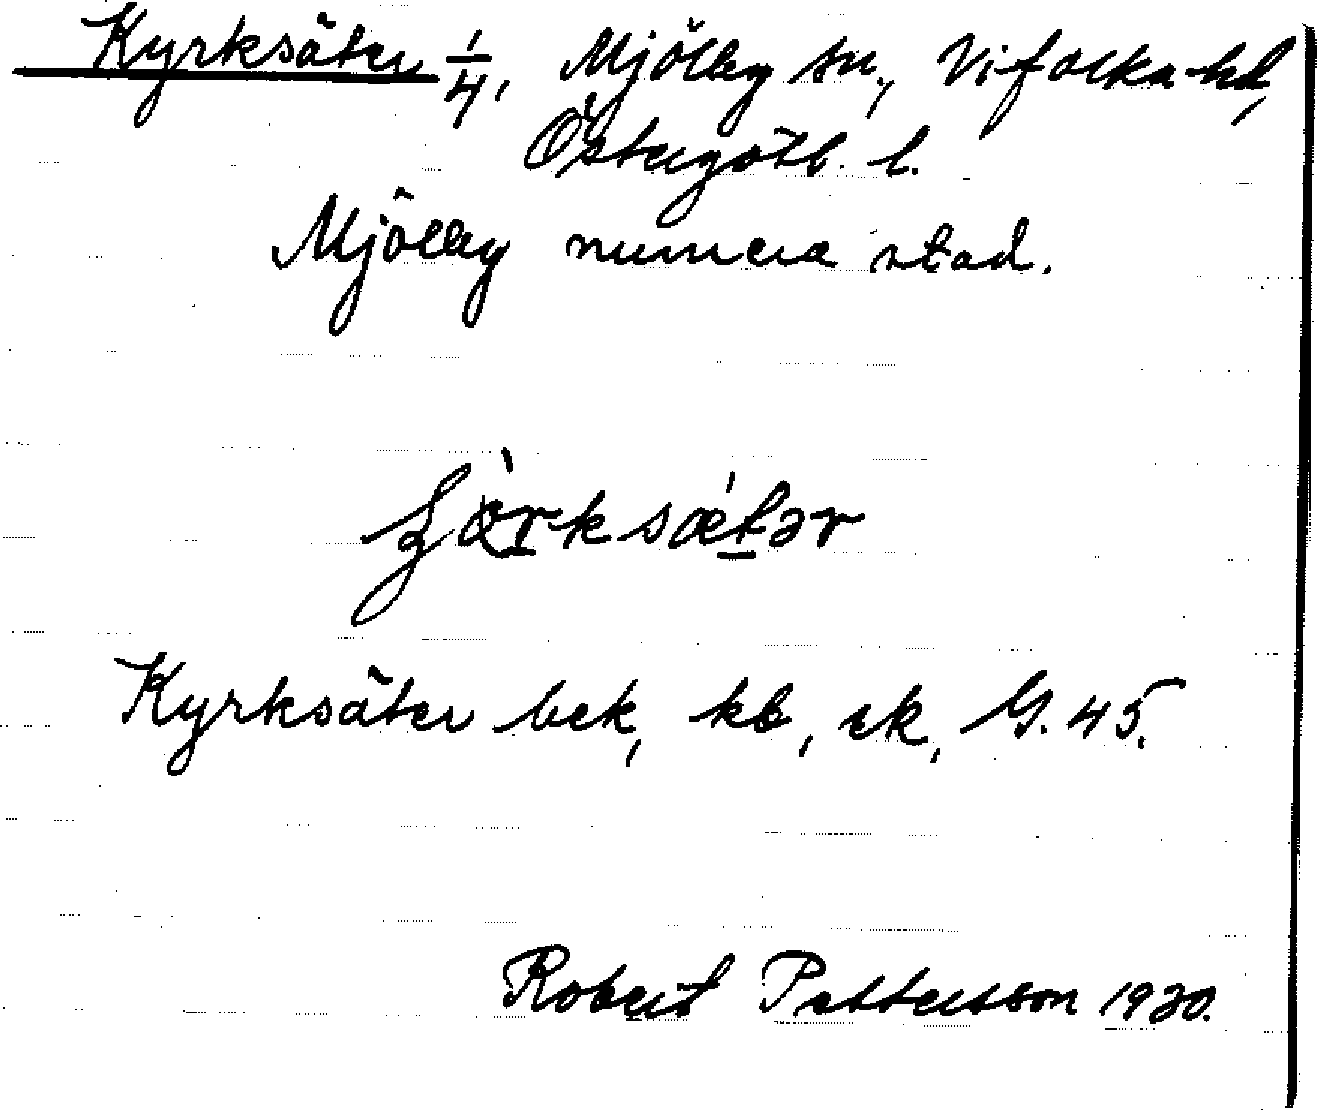 Kyrksäter 1/4, Mjölby sn, Vifolka hd,
Östergötl. l.
Mjölby numera stad.
Kyrksäter bek, kb, rk, G. 45.
Robert Pettersson 1920.